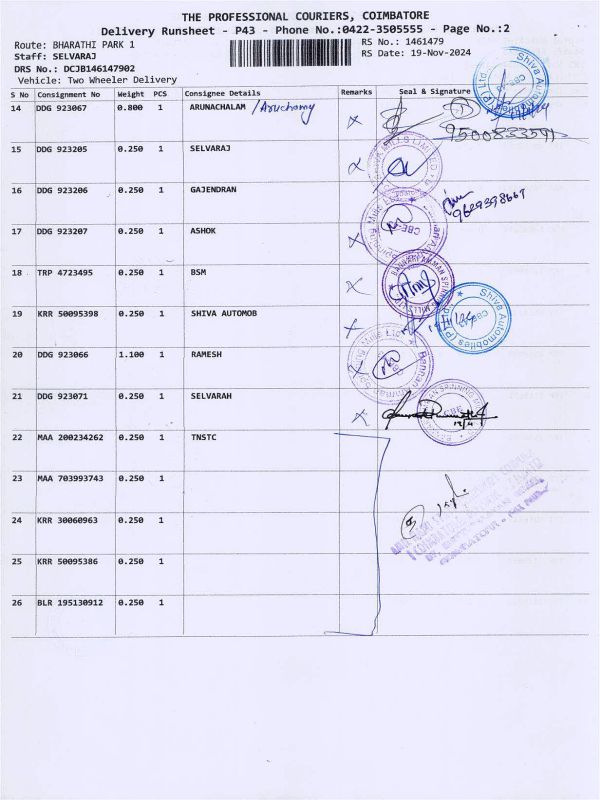 THE PROFESSIONAL COURIERS, COIMBATORE
Delivery Runsheet - P43 - Phone No.:0422-3505555 - Page No.:2
Route: BHARATHI PARK 1 RS No.: 1461479
Staff: SELVARAJ RS Date: 19-Nov-2024
DRS No.: DCJB146147902
Vehicle: Two Wheeler Delivery
S No Consignment No Weight PCS Consignee Details Remarks Seal & Signature
14 DDG 923067 0.800 1 ARUNACHALAM /Aruchamy
9500833591
15 DDG 923205 0.250 1 SELVARAJ
16 DDG 923206 0.250 1 GAJENDRAN
9629398667
17 DDG 923207 0.250 1 ASHOK
18 TRP 4723495 0.250 1 BSM
19 KRR 50095398 0.250 1 SHIVA AUTOMOB
Shiva Automobiles (P) Ltd
CBE
20 DDG 923066 1.100 1 RAMESH
21 DDG 923071 0.250 1 SELVARAH
CBE
22 MAA 200234262 0.250 1 TNSTC
23 MAA 703993743 0.250 1
24 KRR 30060963 0.250 1
25 KRR 50095386 0.250 1
26 BLR 195130912 0.250 1